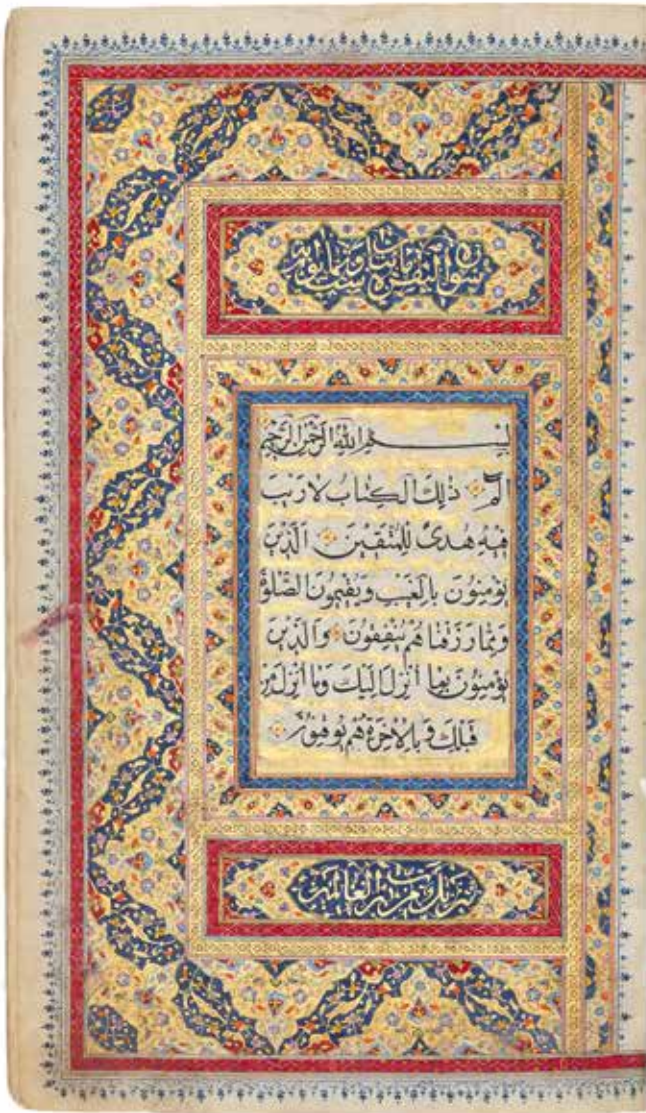 سورة البقرة
بسم الله الرحمن الرحيم
الم ذٰلِكَ الكِتابُ لا رَيْبَ
فيهِ هُدىً لِلْمُتَّقينَ الَّذينَ
يُؤمِنُونَ بِالغَيْبِ وَيُقيمُونَ الصَّلوةَ
وَمِمّا رَزَقْناهُمْ يُنْفِقُونَ وَالَّذينَ
يُؤمِنُونَ بِما اُنْزِلَ اِلَيْكَ وَما اُنْزِلَ مِنْ
قَبْلِكَ وَبِالْاٰخِرَةِ هُمْ يُوقِنُونَ
تنزيل من رب العالمين